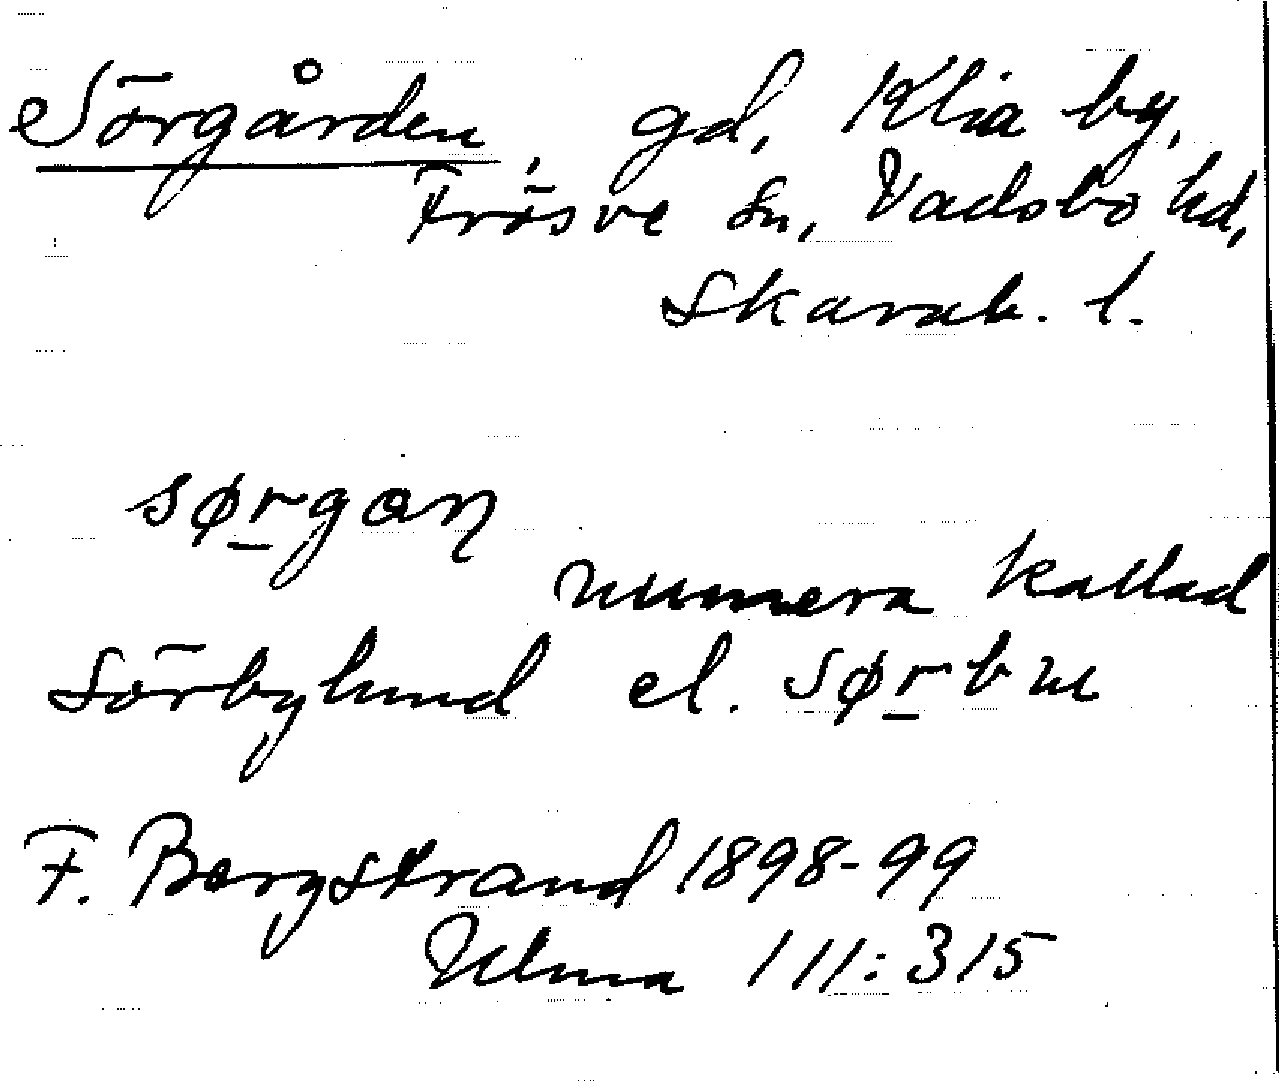 Sörgården, gd, Klia by,
Frösve sn, Vadsbo hd,
Skarab. l.
sørgaɳ
numera kallad
Sörbylund el. sørbɯ
F. Bergstrand 1898-99
Ulma 111:315